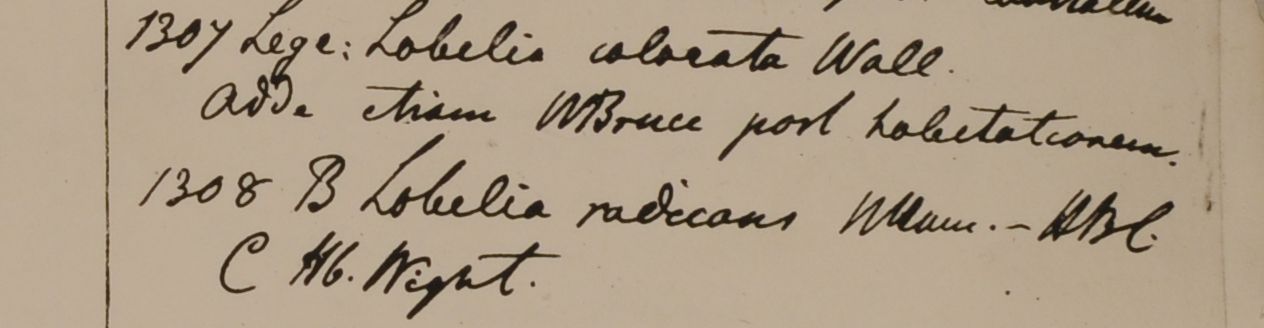 1307 Lege: Lobelia colorata Wall.
Adde etiam WBruce post habitationem.
1308 B Lobelia radicans — HBC.
C Hb. Wight.